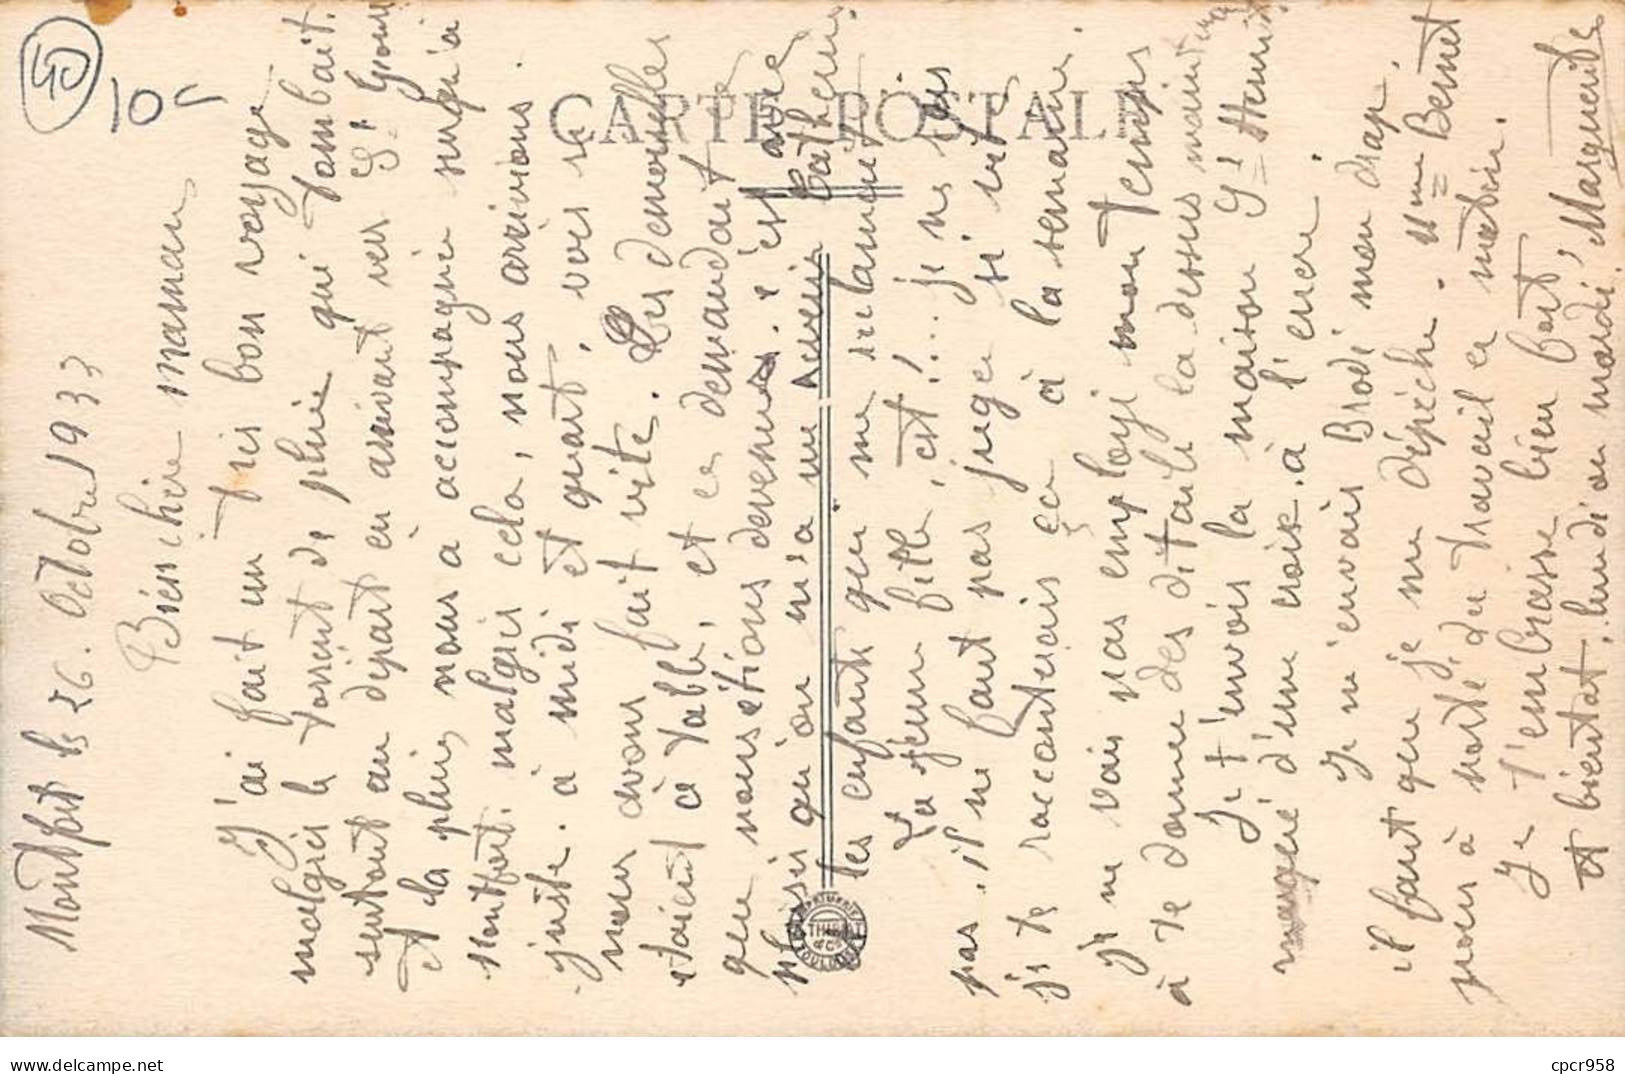 40
10c
CARTE POSTALE
Montfort le 26. Octobre 1933
Bien chère maman
J'ai fait un très bon voyage
malgrès le torrent de pluie qui tombait.
surtout au départ en arrivant vers St Girons
et la pluie nous a accompagnée jusqu'à
Montfort. malgrès cela, nous arrivions
juste. à midi et quart, vois si
nous avons fait vite. Les demoiselles
étaient à table, et ce demandait
que nous étions devenues. c'est avec
plaisir qu'on m'a vu revenir
les enfants qui me réclament
La jeune fille, est!.... je ne dis
pas. il ne faut pas juger si vite
je te raconterais ça à la semaine.
je ne vais pas employé mon temps
à te donner des détails la dessus maintenant
Je t'envois la maison St
marqué d'une croix à l'encre.
Je n'envais Brodé mon drap.
il faut que je me dépèche. Mme Bernet
pour à porté du travail ce matin.
Je t'embrasse bien fort,
et bientôt, lundi ou mardi, Marguerite
IMPRIMERIE THIRIAT & Cie TOULOUSE
cpcr958